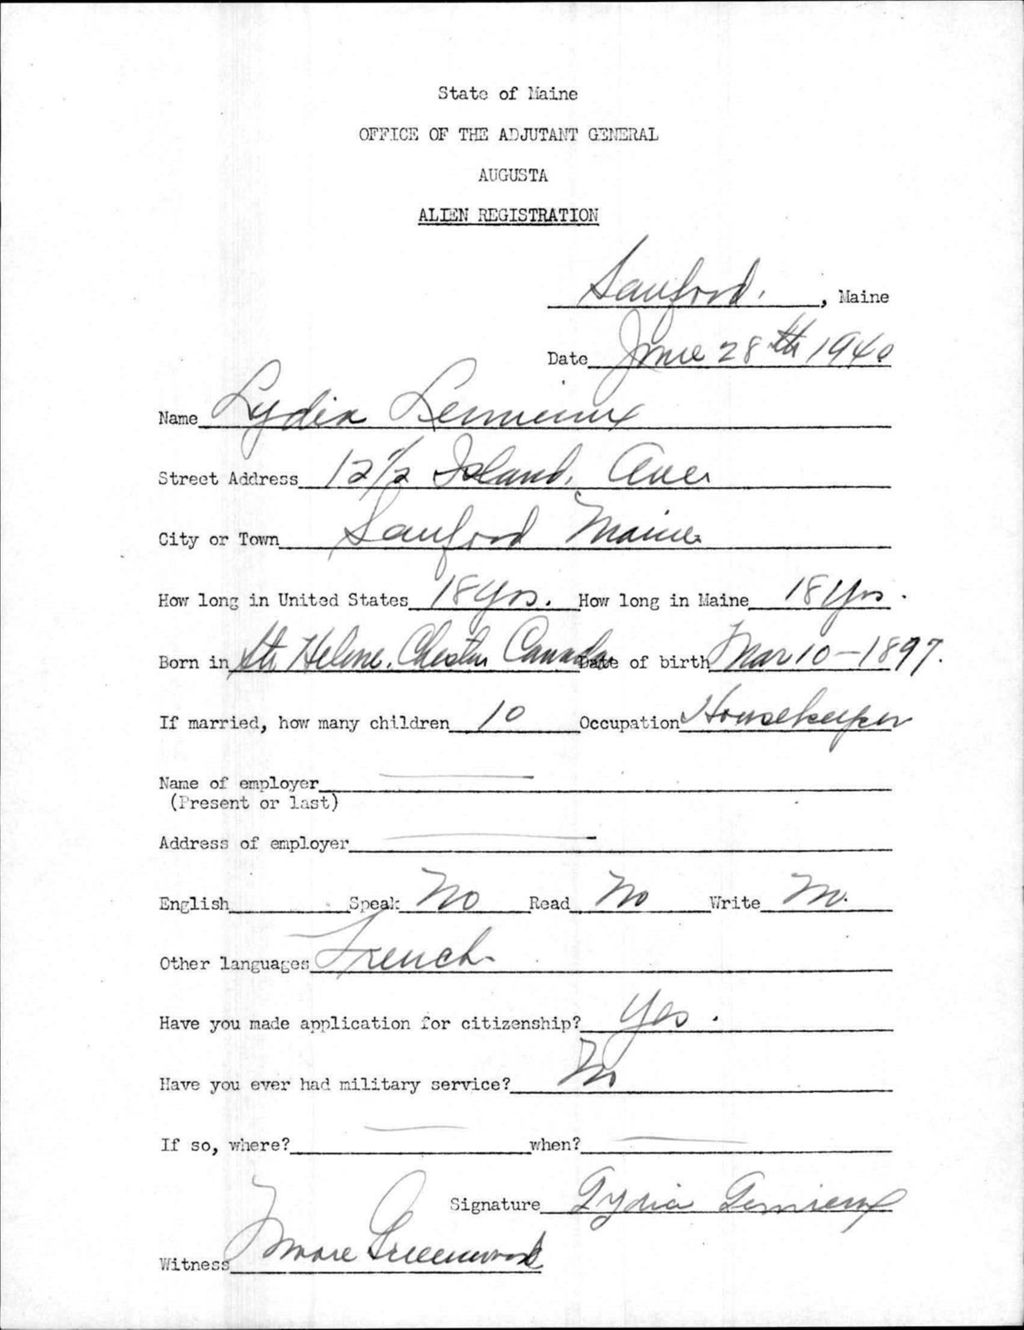 State of Maine
OFFICE OF THE ADJUTANT GENERAL
AUGUSTA
ALIEN REGISTRATION
Sanford. , Maine
Date June 28th 1940
Name Lydia Lemieux
Street Address 12 1/2 Island. Ave
City or Town Sanford Maine
How long in United States 18 Yrs. How long in Maine 18 Yrs.
Born in Ste Helene, Chester Canada Date of birth Mar 10-1897.
If married, how many children 10 Occupation Housekeeper
Name of employer
(Present or last)
Address of employer
English Speak No Read No Write No.
Other languages French
Have you made application for citizenship? Yes.
Have you ever had military service? No
If so, where? when?
Signature Lydia Lemieux
Witness Greenwood